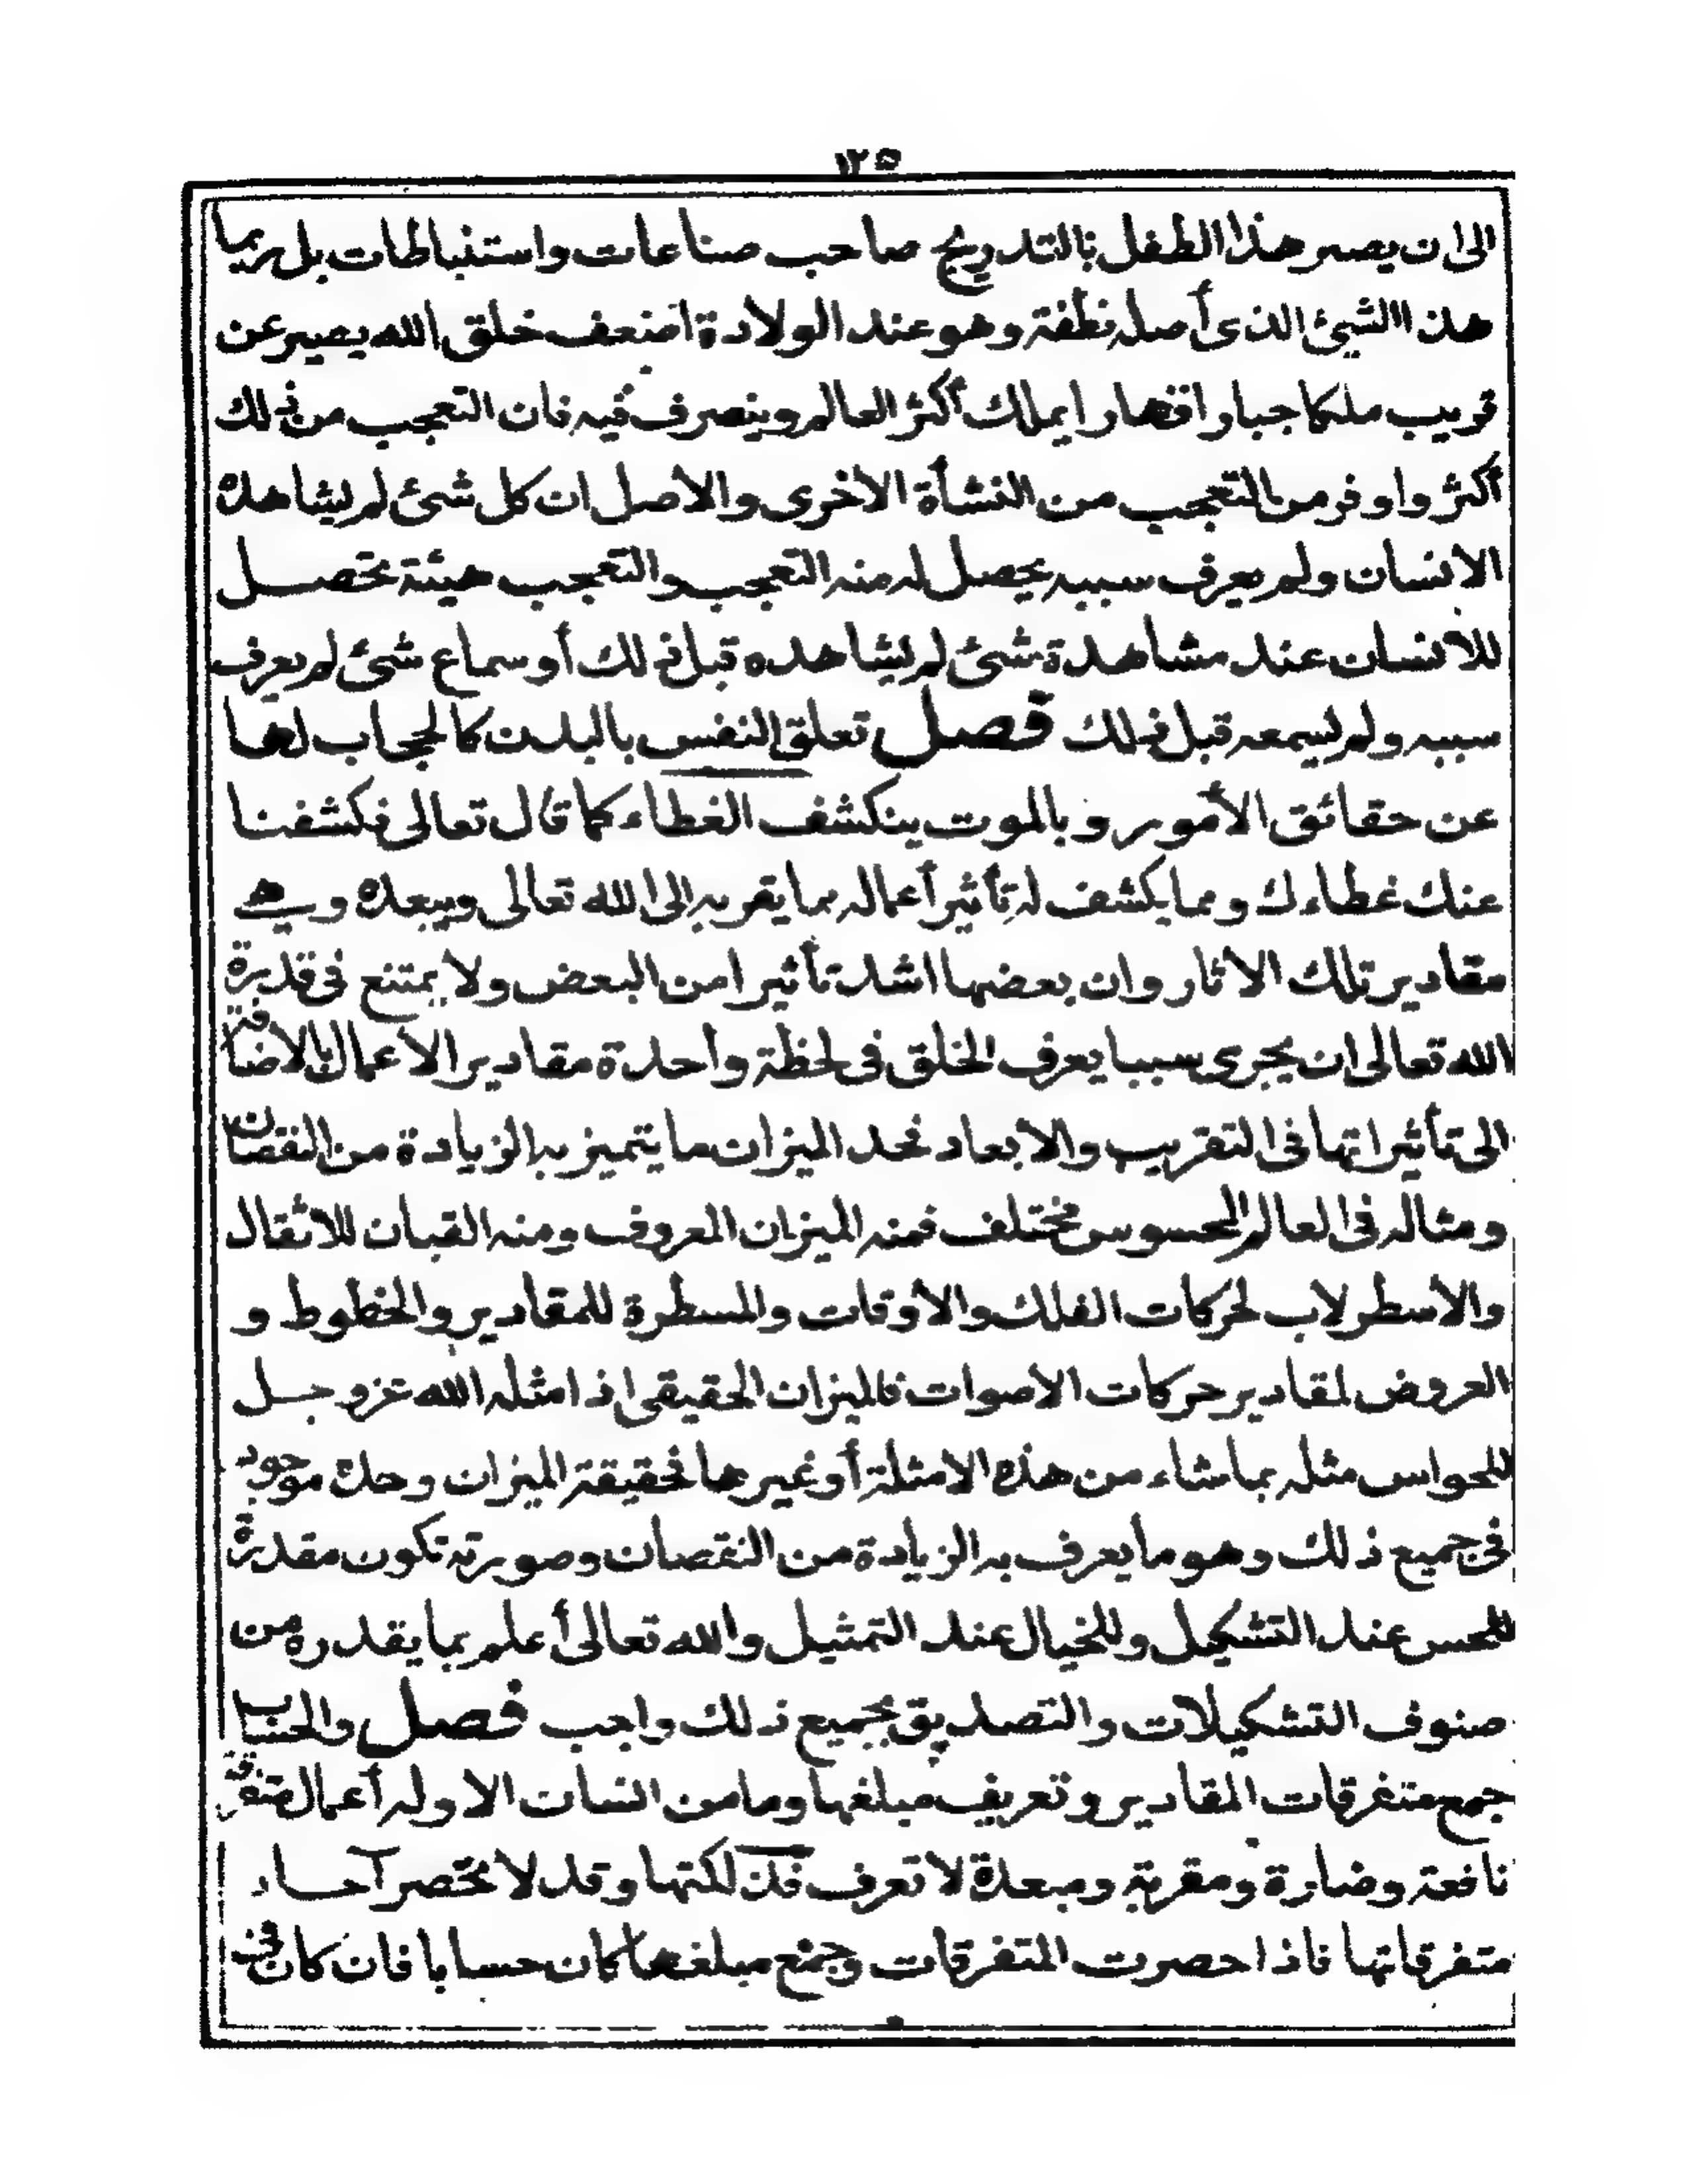 ١٢٥
الى ان يصير هذا الطفل بالتدريج صاحب صناعات واستنباطات بل ربما
هذا الشئ الذى أصله نطفة وهو عند الولادة اضعف خلق الله يصير عن
قريب ملكا جبارا قهارا يملك أكثر العالم ويتصرف فيه فان التعجب من ذلك
أكثر واوفر من التعجب من النشأة الاخرى والاصل ان كل شئ لم يشاهده
الانسان ولم يعرف سببه يحصل له منه التعجب والتعجب هيئة تحصل
للانسان عند مشاهدة شئ لم يشاهده قبل ذلك أو سماع شئ لم يعرف
سببه ولم يسمعه قبل ذلك فصل تعلق النفس بالبدن كالحجاب لها
عن حقائق الأمور وبالموت ينكشف الغطاء كما قال تعالى فكشفنا
عنك غطاءك ومما يكشف له تأثير أعماله بما يقربه الى الله تعالى ويبعده وهى
مقادير تلك الاثار وان بعضها اشد تأثيرا من البعض ولا يمتنع فى قدرة
الله تعالى ان يجرى سببا يعرف الخلق فى لحظة واحدة مقادير الاعمال بالاضافة
الى تأثيراتها فى التقريب والابعاد فحد الميزان ما يتميز به الزيادة من النقصان
ومثاله فى العالم المحسوس مختلف فمنه الميزان المعروف ومنه القبان للاثقال
والاسطرلاب لحركات الفلك والاوقات والمسطرة للمقادير والخطوط و
العروض لمقادير حركات الاصوات فالميزان الحقيقى اذا مثله الله عزو جل
للحواس مثله بما شاء من هذه الامثلة أو غيرها فحقيقة الميزان وحده موجود
فى جميع ذلك وهو ما يعرف به الزيادة من النقصان وصورته تكون مقدرة
للحس عند التشكيل وللخيال عند التمثيل والله تعالى أعلم بما يقدره من
صنوف التشكيلات والتصديق بجميع ذلك واجب فصل والحساب
جمع متفرقات المقادير وتعريف مبلغها وما من انسان الا وله أعمال متفرقة
نافعة وضارة ومقربة ومبعدة لا تعرف فذلكتها وقد لا تحصر آحاد
متفرقاتها فاذا حصرت المتفرقات وجمع مبلغها كان حسابا فان كان فى